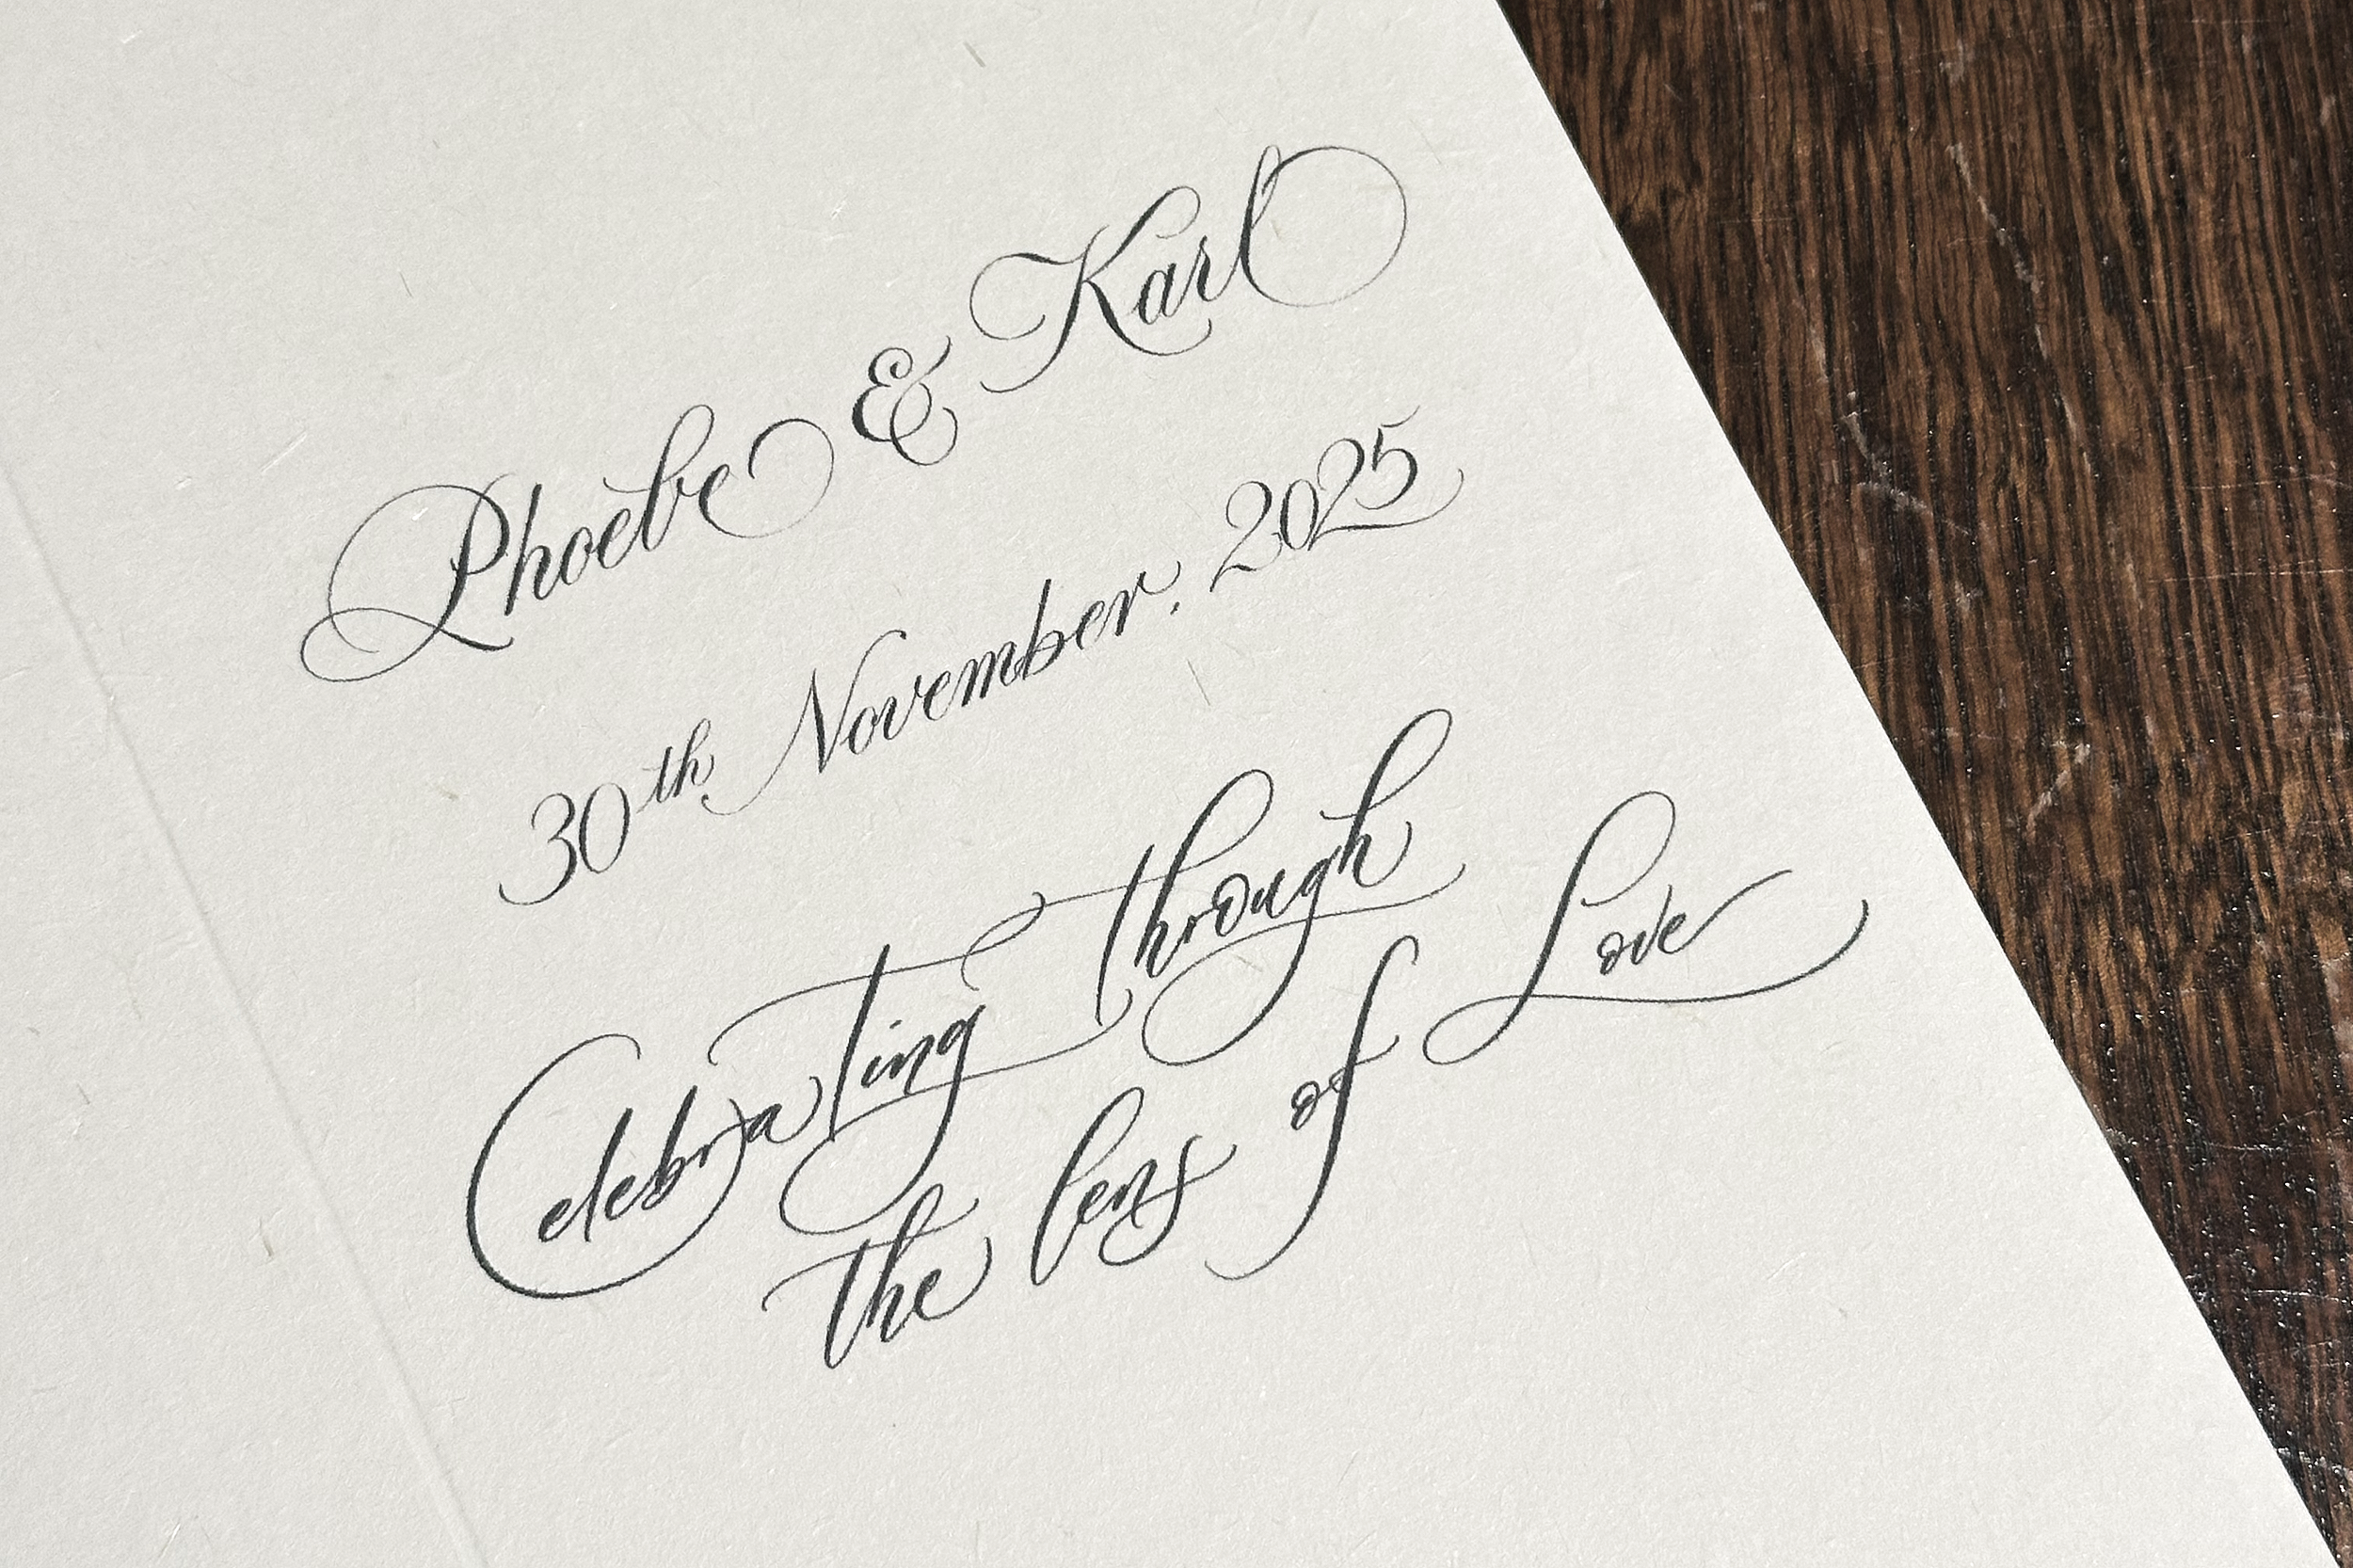 Phoebe & Karl
30th November. 2025
Celebrating through
the lens of Love